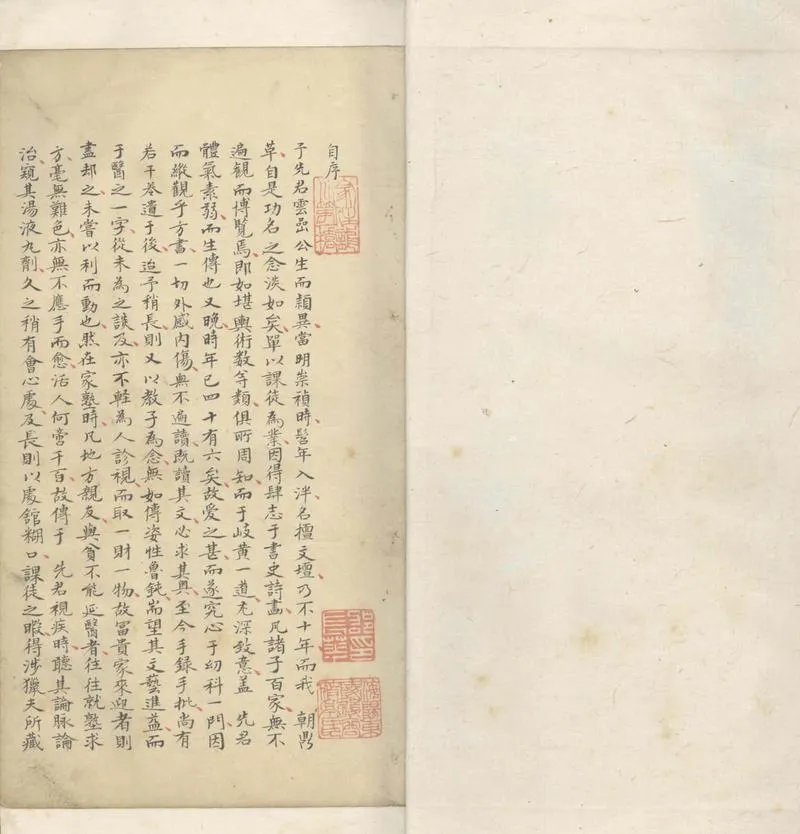 自序
予先君雲嵒公生而頴異當明崇禎時髫年入泮名擅文壇乃不十年而我 朝鼎
草自是功名之念淡如矣單以課徒為業因得肆志于書史詩畫凡諸子百家無不
遍觀而博覽焉即如堪輿術數等類俱所周知而于岐黃一道尤深致意蓋 先君
體氣素弱而生傳也又晚時年已四十有六矣故愛之甚而遂究心于幼科一門因
而縱觀乎方書一切外感內傷無不遍讀既讀其文必求其奥至今手錄手批尚有
若干卷遺于後迨予稍長則又以教子為念無如傳姿性魯鈍耑望其文藝進益而
于醫之一字從未為之談及亦不輕為人診視而取一財一物故冨貴家來迎者則
盡却之未嘗以利而動也然在家塾時凡地方親友與貧不能延醫者往往就塾求
方毫無難色亦無不應手而愈活人何啻千百故傳于 先君視疾時聽其論脉論
治窺其湯液丸劑久之稍有會心處及長則以處舘糊口課徒之暇得涉獵夫所藏